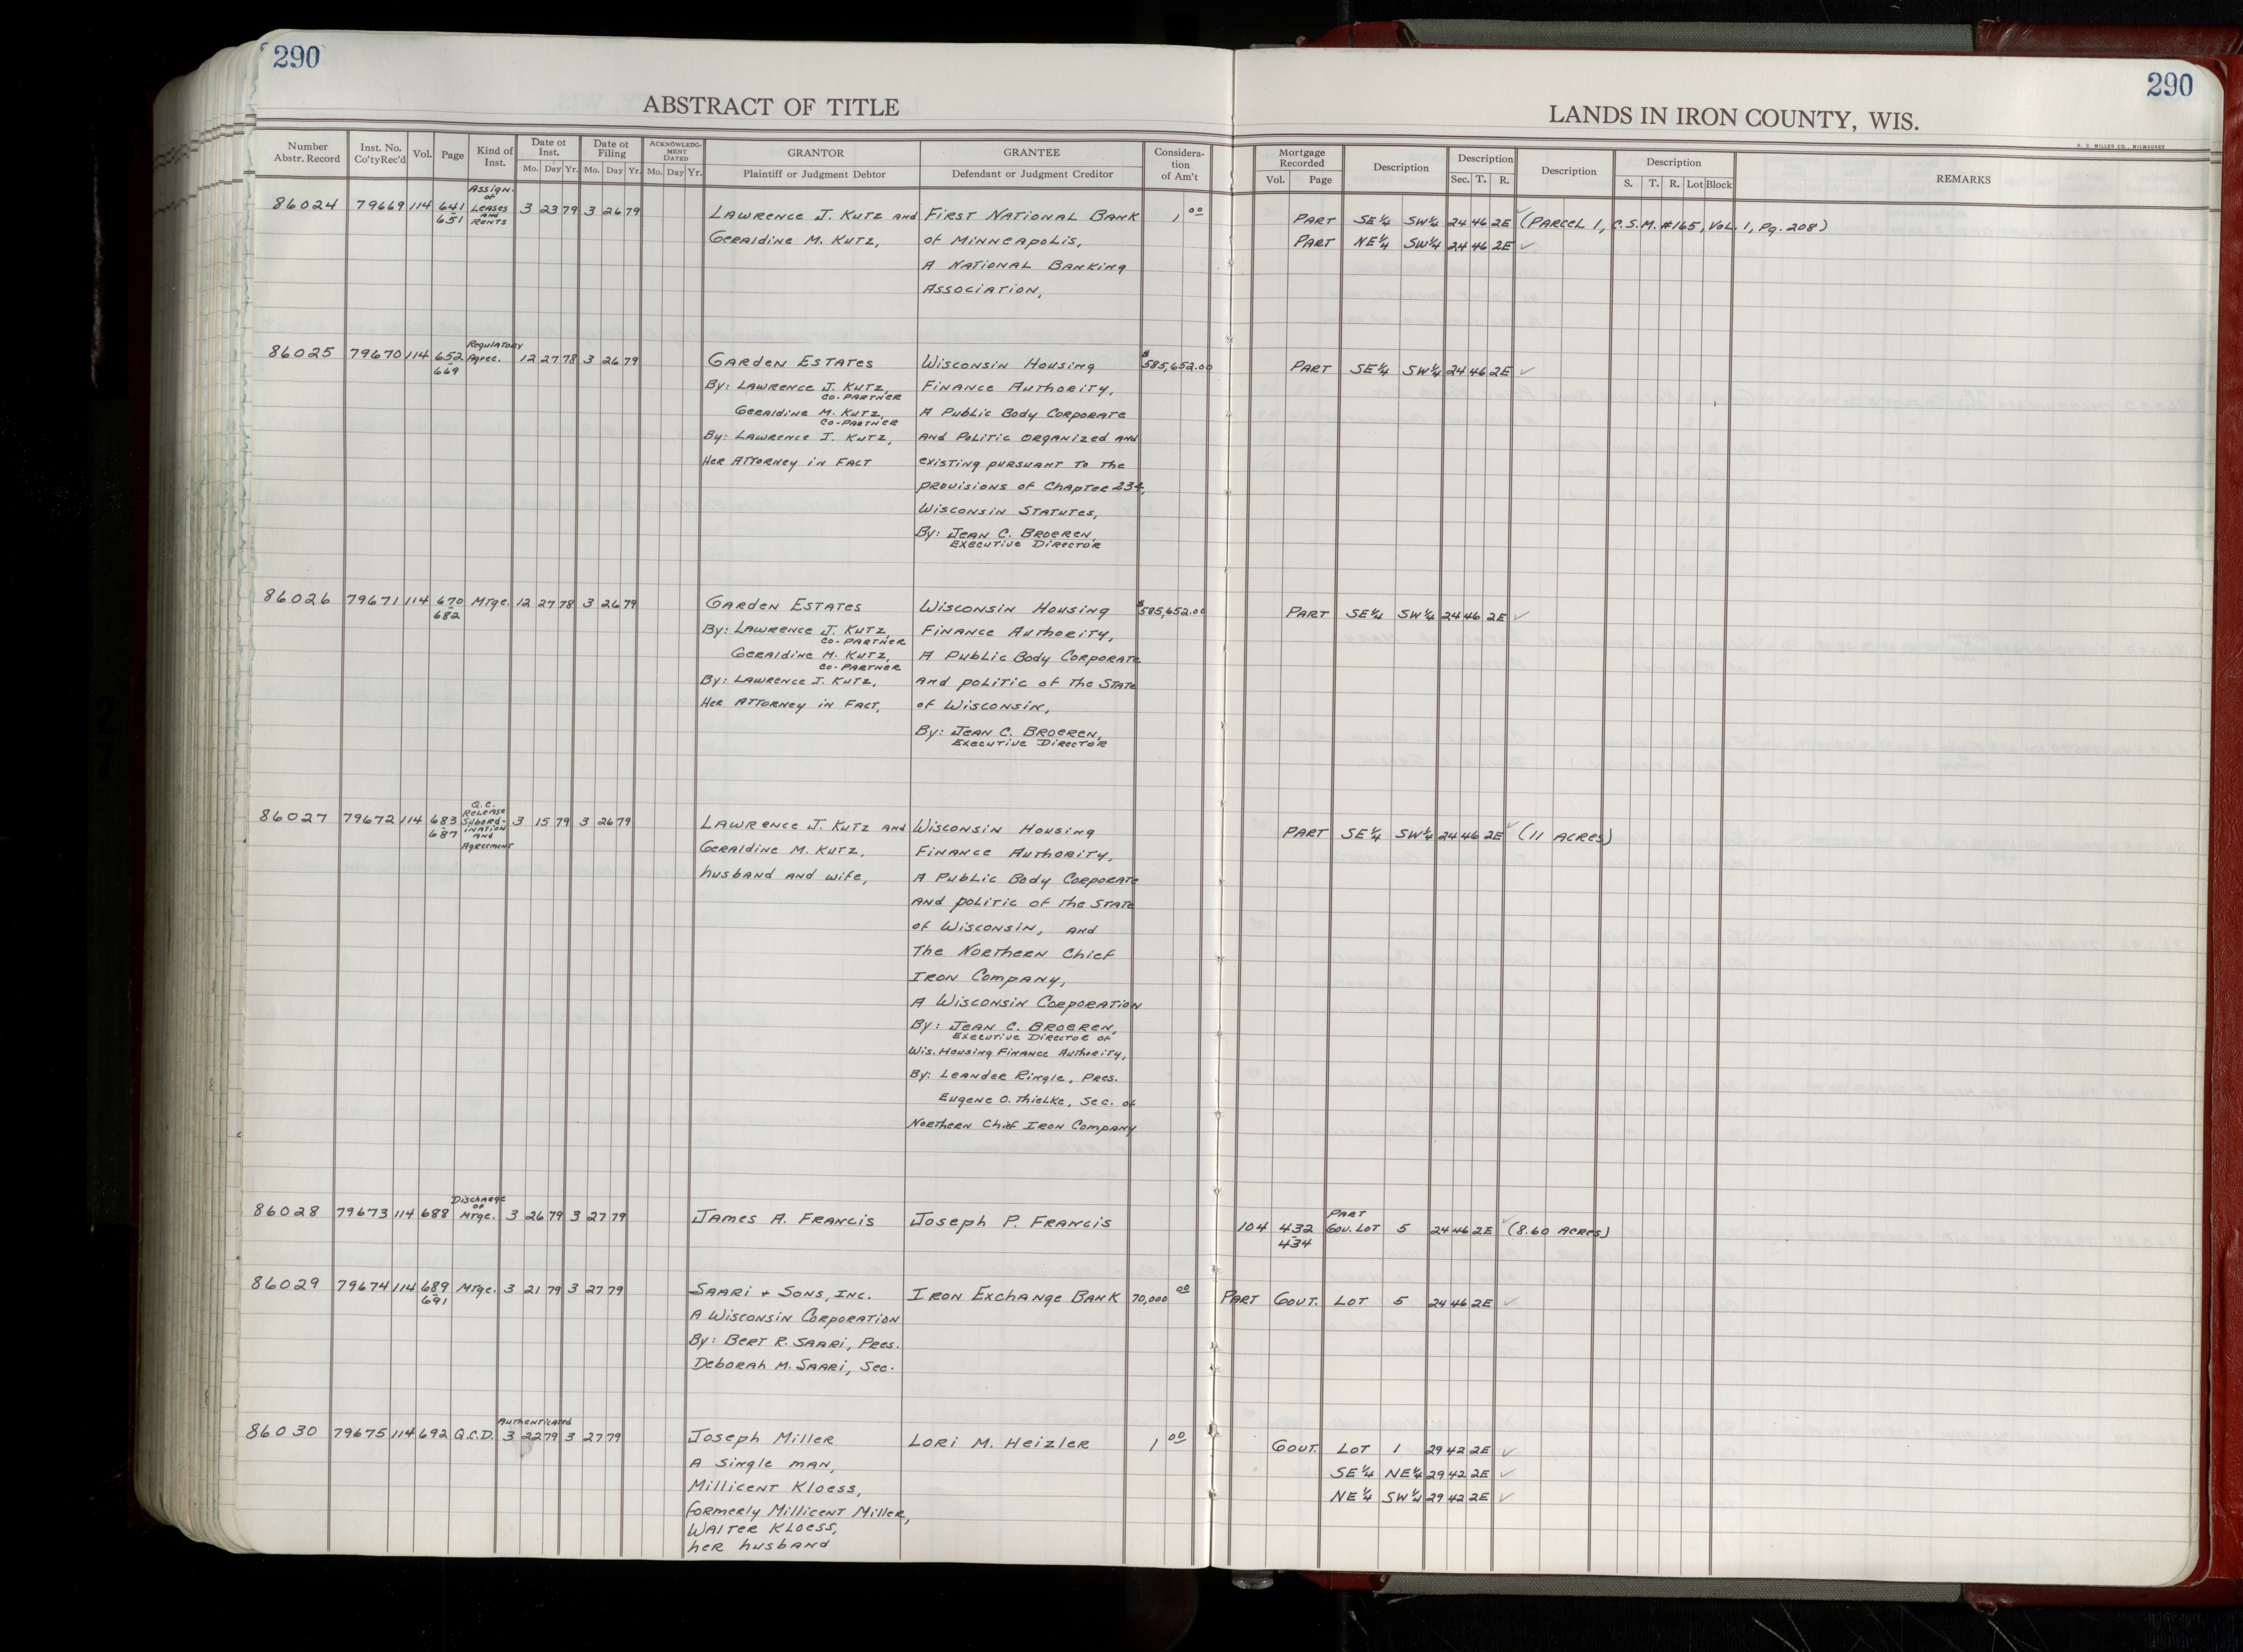 290
290
ABSTRACT OF TITLE
LANDS IN IRON COUNTY, WIS.
H. C. MILLER CO., MILWAUKEE
Number Abstr. Record | Inst. No. Co'ty Rec'd | Vol. | Page | Kind of Inst. | Date of Inst. Mo. Day Yr. | Date of Filing Mo. Day Yr. | ACKNOWLEDGMENT DATED Mo. Day Yr. | GRANTOR Plaintiff or Judgment Debtor | GRANTEE Defendant or Judgment Creditor | Consideration of Am't | Mortgage Recorded Vol. Page | Description | Description Sec. T. R. | Description | Description S. T. R. Lot Block | REMARKS
86024 79669 114 641-651 Assign. of Leases and Rents 3 23 79 3 26 79 Lawrence J. Kutz and First National Bank 1 00 Part SE¼ SW¼ 24 46 2E ✓ (Parcel 1, C.S.M. #165, Vol. 1, Pg. 208)
Geraldine M. Kutz, of Minneapolis, Part NE¼ SW¼ 24 46 2E ✓
A National Banking
Association,
86025 79670 114 652-669 Regulatory Agree. 12 27 78 3 26 79 Garden Estates Wisconsin Housing $585,652.00 Part SE¼ SW¼ 24 46 2E ✓
By: Lawrence J. Kutz, Co-Partner Finance Authority,
Geraldine M. Kutz, Co-Partner A Public Body Corporate
By: Lawrence J. Kutz, and Politic organized and
Her Attorney in Fact existing pursuant to the
provisions of Chapter 234,
Wisconsin Statutes,
By: Jean C. Broeren,
Executive Director
86026 79671 114 670-682 Mtge. 12 27 78 3 26 79 Garden Estates Wisconsin Housing $585,652.00 Part SE¼ SW¼ 24 46 2E ✓
By: Lawrence J. Kutz, Co-Partner Finance Authority,
Geraldine M. Kutz, Co-Partner A Public Body Corporate
By: Lawrence J. Kutz, and politic of the State
Her Attorney in Fact, of Wisconsin,
By: Jean C. Broeren,
Executive Director
86027 79672 114 683-687 Q.C. Release Subordination and Agreement 3 15 79 3 26 79 Lawrence J. Kutz and Wisconsin Housing Part SE¼ SW¼ 24 46 2E ✓ (11 Acres)
Geraldine M. Kutz, Finance Authority,
husband and wife, A Public Body Corporate
and politic of the State
of Wisconsin, and
The Northern Chief
Iron Company,
A Wisconsin Corporation
By: Jean C. Broeren,
Executive Director of
Wis. Housing Finance Authority,
By: Leander Ringle, Pres.
Eugene O. Thielke, Sec. of
Northern Chief Iron Company
86028 79673 114 688 Discharge of Mtge. 3 26 79 3 27 79 James A. Francis Joseph P. Francis 104 432-434 Part Gov. Lot 5 24 46 2E ✓ (8.60 Acres)
86029 79674 114 689-691 Mtge. 3 21 79 3 27 79 Saari + Sons, Inc. Iron Exchange Bank 70,000 00 Part Govt. Lot 5 24 46 2E ✓
A Wisconsin Corporation
By: Bert R. Saari, Pres.
Deborah M. Saari, Sec.
86030 79675 114 692 Q.C.D. Authenticated 3 22 79 3 27 79 Joseph Miller Lori M. Heizler 1 00 Govt. Lot 1 29 42 2E ✓
A single man, SE¼ NE¼ 29 42 2E ✓
Millicent Kloess, NE¼ SW¼ 29 42 2E ✓
formerly Millicent Miller,
Walter Kloess,
her husband